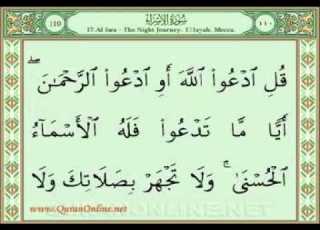 110 سُورَةُ الإِسْرَاءِ ١١٠
17. Al Isra - The Night Journey. 111ayah. Mecca.
قُلِ ٱدْعُوا۟ ٱللَّهَ أَوِ ٱدْعُوا۟ ٱلرَّحْمَـٰنَ ۖ
أَيًّا مَّا تَدْعُوا۟ فَلَهُ ٱلْأَسْمَآءُ
ٱلْحُسْنَىٰ ۚ وَلَا تَجْهَرْ بِصَلَاتِكَ وَلَا
www.QuranOnline.net